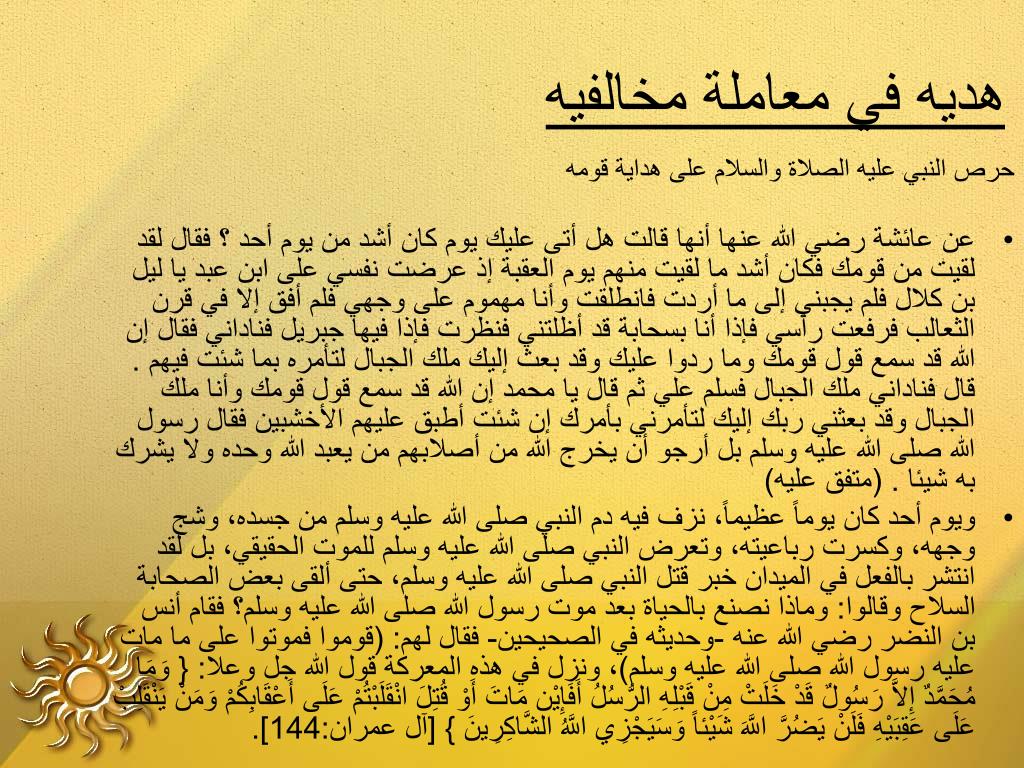 هديه في معاملة مخالفيه
حرص النبي عليه الصلاة والسلام على هداية قومه
• عن عائشة رضي الله عنها أنها قالت هل أتى عليك يوم كان أشد من يوم أحد ؟ فقال لقد
لقيت من قومك فكان أشد ما لقيت منهم يوم العقبة إذ عرضت نفسي على ابن عبد يا ليل
بن كلال فلم يجبني إلى ما أردت فانطلقت وأنا مهموم على وجهي فلم أفق إلا في قرن
الثعالب فرفعت رأسي فإذا أنا بسحابة قد أظلتني فنظرت فإذا فيها جبريل فناداني فقال إن
الله قد سمع قول قومك وما ردوا عليك وقد بعث إليك ملك الجبال لتأمره بما شئت فيهم .
قال فناداني ملك الجبال فسلم علي ثم قال يا محمد إن الله قد سمع قول قومك وأنا ملك
الجبال وقد بعثني ربك إليك لتأمرني بأمرك إن شئت أطبق عليهم الأخشبين فقال رسول
الله صلى الله عليه وسلم بل أرجو أن يخرج الله من أصلابهم من يعبد الله وحده ولا يشرك
به شيئا . (متفق عليه)
• ويوم أحد كان يوماً عظيماً، نزف فيه دم النبي صلى الله عليه وسلم من جسده، وشج
وجهه، وكسرت رباعيته، وتعرض النبي صلى الله عليه وسلم للموت الحقيقي، بل لقد
انتشر بالفعل في الميدان خبر قتل النبي صلى الله عليه وسلم، حتى ألقى بعض الصحابة
السلاح وقالوا: وماذا نصنع بالحياة بعد موت رسول الله صلى الله عليه وسلم؟ فقام أنس
بن النضر رضي الله عنه -وحديثه في الصحيحين- فقال لهم: (قوموا فموتوا على ما مات
عليه رسول الله صلى الله عليه وسلم)، ونزل في هذه المعركة قول الله جل وعلا: { وَمَا
مُحَمَّدٌ إِلاَّ رَسُولٌ قَدْ خَلَتْ مِنْ قَبْلِهِ الرُّسُلُ أَفَإِيْن مَاتَ أَوْ قُتِلَ انْقَلَبْتُمْ عَلَى أَعْقَابِكُمْ وَمَنْ يَنْقَلِبْ
عَلَى عَقِبَيْهِ فَلَنْ يَضُرَّ اللَّهَ شَيْئاً وَسَيَجْزِي اللَّهُ الشَّاكِرِينَ } [آل عمران:144].